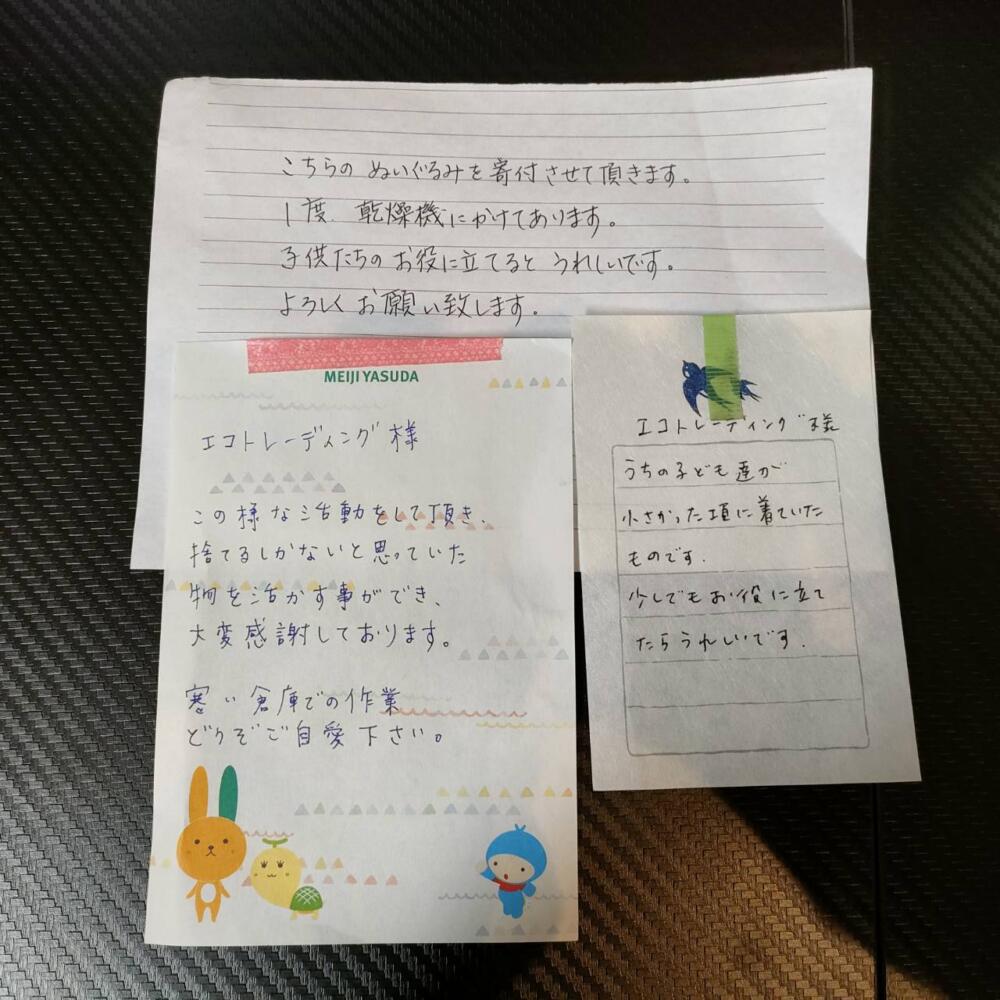 こちらの ぬいぐるみを寄付させて頂きます。
1度 乾燥機にかけてあります。
子供たちの お役に立てると うれしいです。
よろしく お願い致します。
MEIJI YASUDA
エコトレーディング様
この様な活動をして頂き、
捨てるしかないと思っていた
物を活かす事ができ、
大変感謝しております。
寒い倉庫での作業
どうぞご自愛下さい。
エコトレーディング様
うちの子ども達が
小さかった頃に着ていた
ものです.
少しでもお役に立て
たらうれしいです.